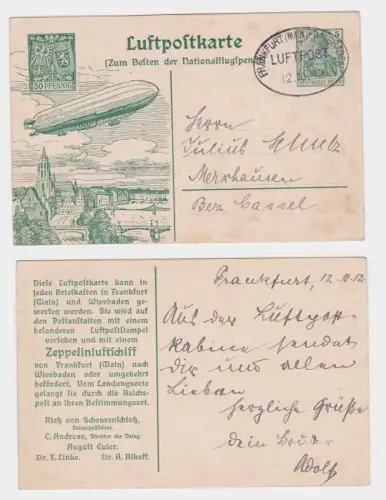 Luftpostkarte
(Zum Besten der Nationalflugspende
50 PFENNIG
FRANKFURT (MAIN)
LUFTPOST
12.10.
5
Herrn
Julius
Merxhausen
Bez. Cassel.
Diese Luftpostkarte kann in
jeden Briefkasten in Frankfurt
(Main) und Wiesbaden ge-
worfen werden. Sie wird auf
den Postanstalten mit einem
besonderen Luftpoststempel
versehen und mit einem
Zeppelinluftschiff
von Frankfurt (Main) nach
Wiesbaden oder umgekehrt
befördert. Vom Landungsorte
gelangt sie durch die Reichs-
post an ihren Bestimmungsort.
Rieß von Scheurenschloß,
Polizeipräsident.
C. Andreae, Direktor der Delag.
August Euler.
Dr. F. Linke. Dr. A.
Frankfurt, 12.10.12
Aus der
kabine sendet
dir und allen
Lieben
herzliche Grüße
dein Bruder
Adolf